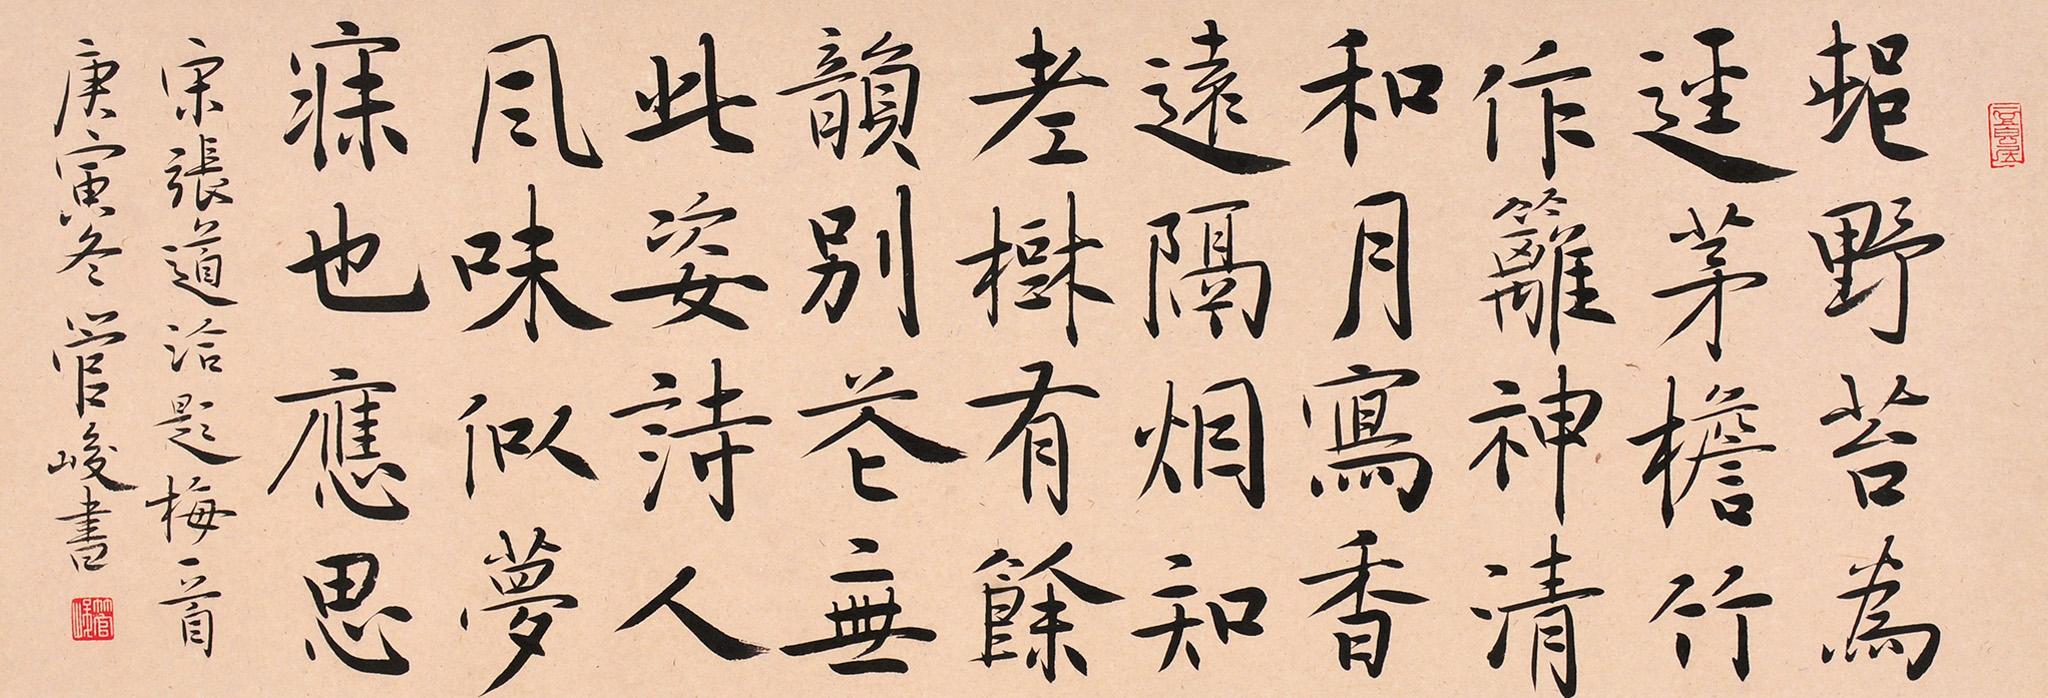 邨野苔為
逕茅檐竹
作籬神清
和月寫香
遠隔烟知
老樹有餘
韻別花無
此姿詩人
風味似夢
寐也應思
宋張道洽題梅一首
庚寅冬管峻書
管峻